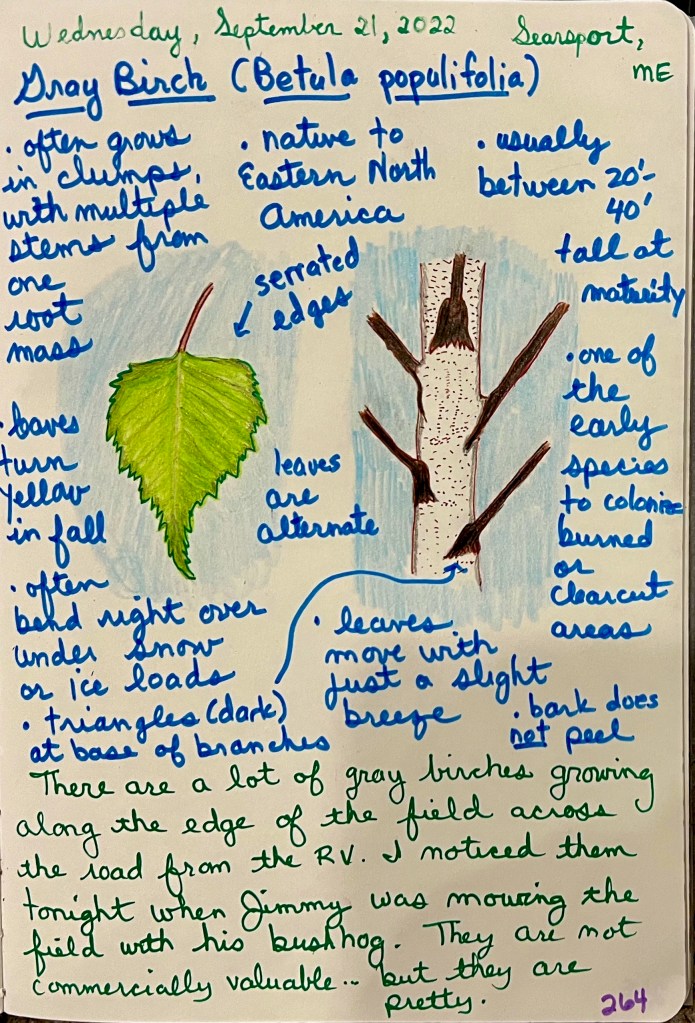 Wednesday, September 21, 2022
Searsport,
ME
Gray Birch (Betula populifolia)
• often grows
in clumps,
with multiple
stems from
one
root
mass
• native to
Eastern North
America
• usually
between 20'-
40'
tall at
maturity
serrated
edges
• one of
the
early
species
to colonize
burned
or
clearcut
areas
• leaves
turn
yellow
in fall
leaves
are
alternate
• often
bend right over
under snow
or ice loads
• triangles (dark)
at base of branches
• leaves
move with
just a slight
breeze
• bark does
not peel
There are a lot of gray birches growing
along the edge of the field across
the road from the RV. I noticed them
tonight when Jimmy was mowing the
field with his bushhog. They are not
commercially valuable... but they are
pretty.
264